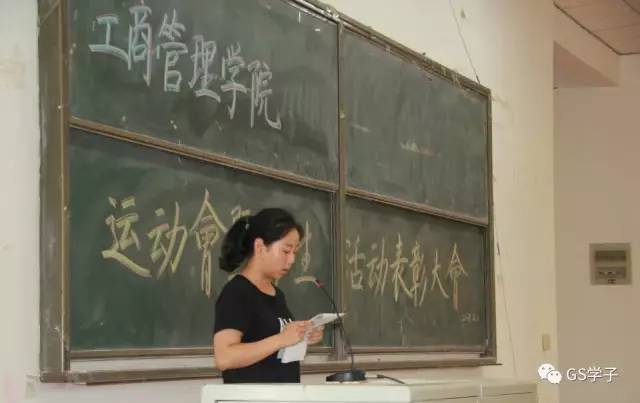 工商管理学院
运动會
生
活动表彰大會
GS学子